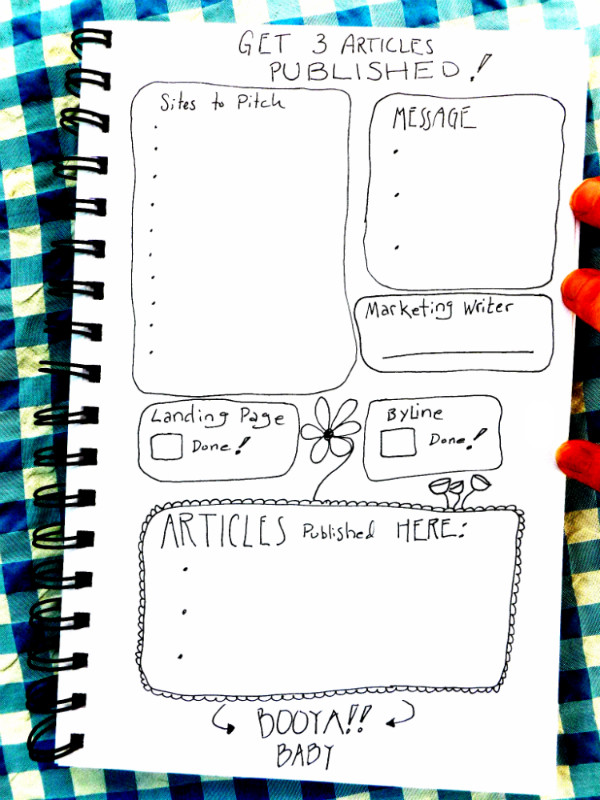 GET 3 ARTICLES
PUBLISHED!
Sites to Pitch
MESSAGE
Marketing Writer
Landing Page
Done!
Byline
Done!
ARTICLES Published HERE:
BOOYA!!
BABY